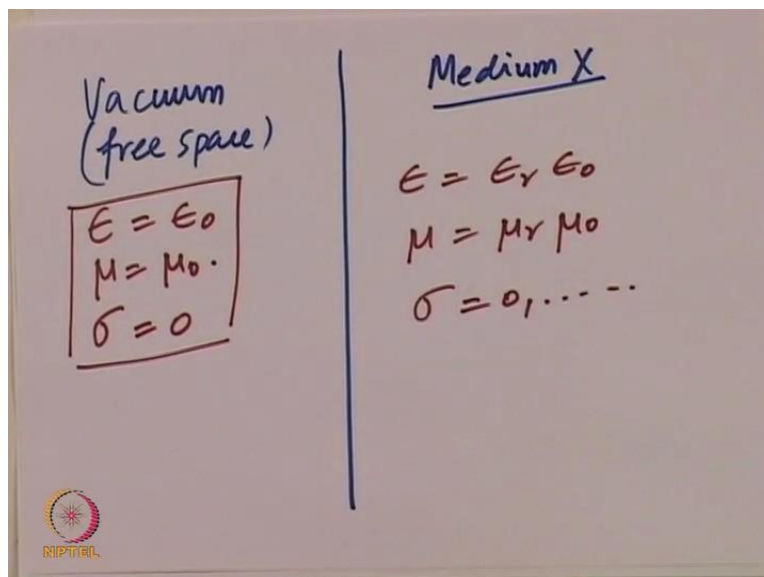 Vacuum
(free space)
ϵ = ϵ₀
μ = μ₀.
σ = 0
Medium X
ϵ = ϵᵣ ϵ₀
μ = μᵣ μ₀
σ = 0, .....
NPTEL